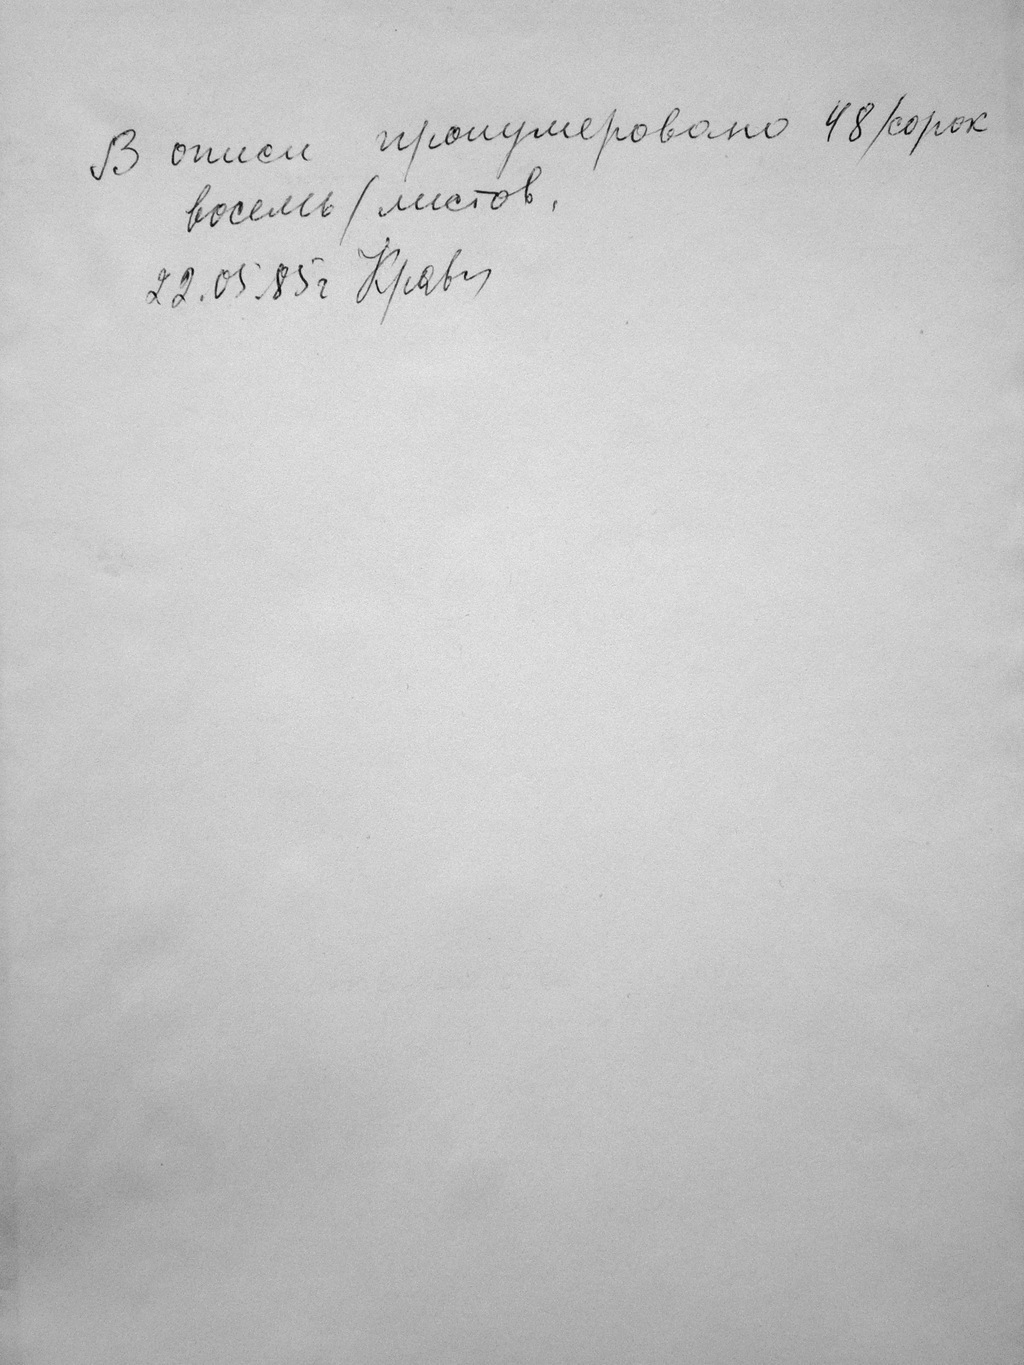 В описи пронумеровано 48/сорок
восемь/листов.
22.05.85г